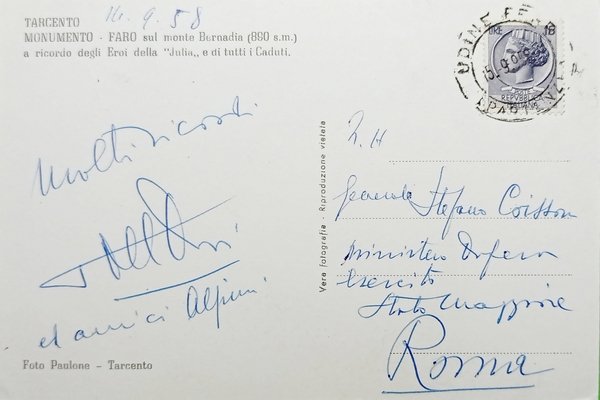 TARCENTO 14.9.58
MONUMENTO - FARO sul monte Bernadia (860 s.m.)
a ricordo degli Eroi della "Julia„ e di tutti i Caduti.
Molti ricordi
ed amici Alpini
Foto Paulone - Tarcento
Vera fotografia - Riproduzione vietata
UDINE FERR
PARTENZA
Generale Stefano Coisson
Ministero Difesa
Esercito
Stato Maggiore
Roma